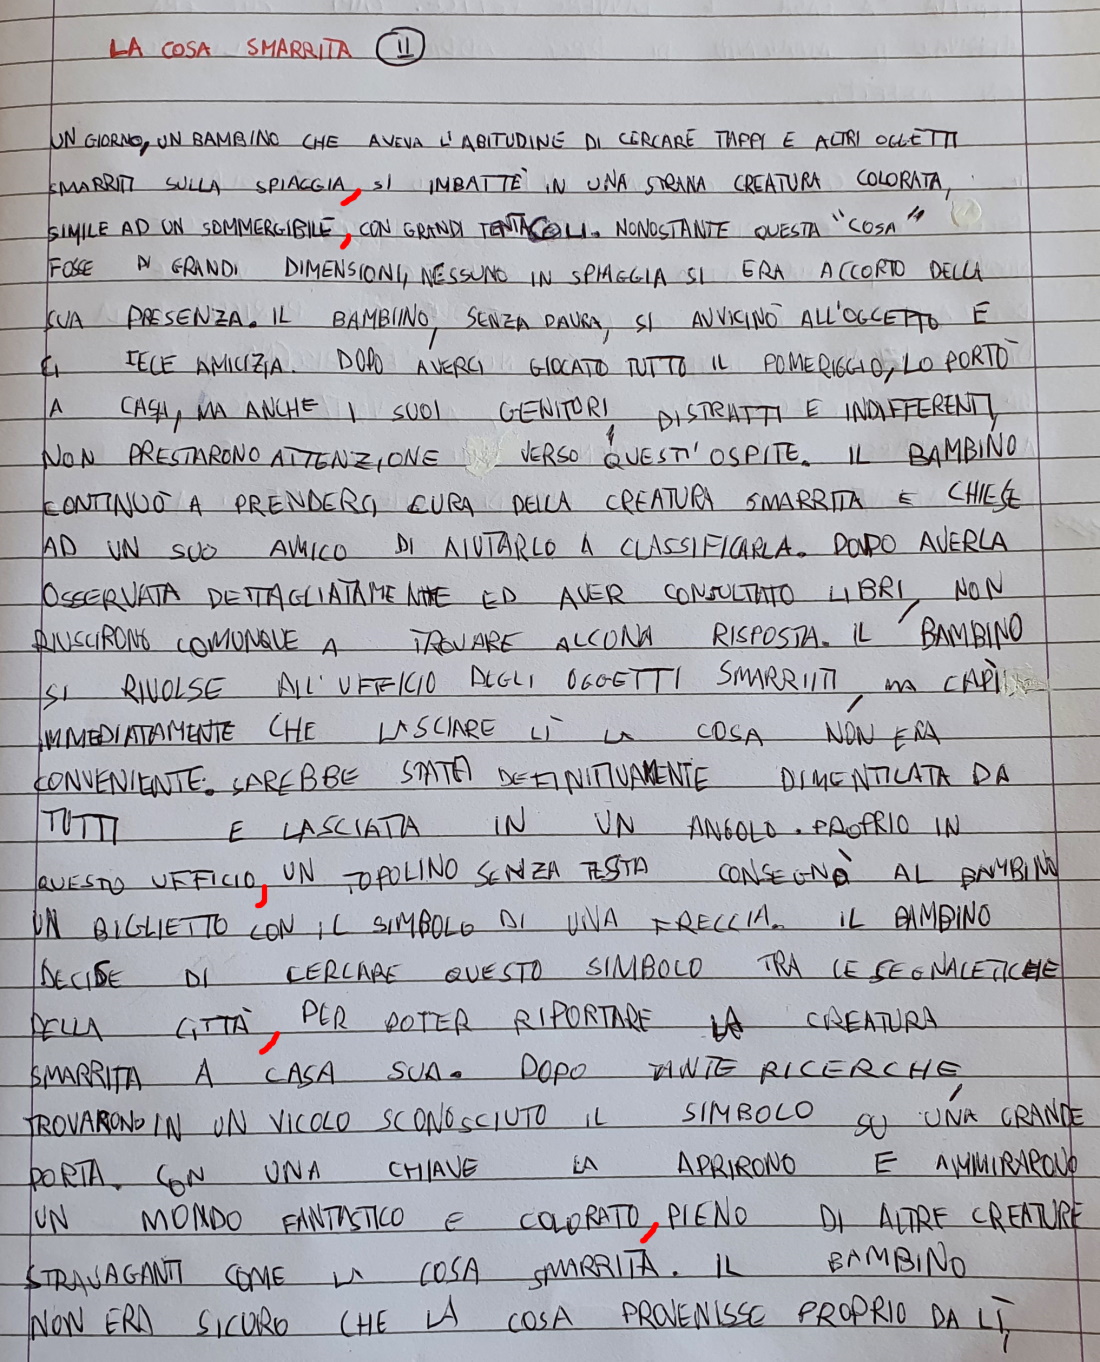 LA COSA SMARRITA 11
UN GIORNO, UN BAMBINO CHE AVEVA L'ABITUDINE DI CERCARE TAPPI E ALTRI OGGETTI
SMARRITI SULLA SPIAGGIA, SI IMBATTÉ IN UNA STRANA CREATURA COLORATA,
SIMILE AD UN SOMMERGIBILE, CON GRANDI TENTACOLI. NONOSTANTE QUESTA "COSA"
FOSSE DI GRANDI DIMENSIONI, NESSUNO IN SPIAGGIA SI ERA ACCORTO DELLA
SUA PRESENZA. IL BAMBIINO, SENZA PAURA, SI AVVICINÒ ALL'OGGETTO E
CI FECE AMICIZIA. DOPO AVERCI GIOCATO TUTTO IL POMERIGGIO, LO PORTÒ
A CASA, MA ANCHE I SUOI GENITORI, DISTRATTI E INDIFFERENTI,
NON PRESTARONO ATTENZIONE VERSO QUESTI'OSPITE. IL BAMBINO
CONTINUÒ A PRENDERCI CURA DELLA CREATURA SMARRITA E CHIESE
AD UN SUO AMICO DI AIUTARLO A CLASSIFICARLA. DOPO AVERLA
OSSERVATA DETTAGLIATAMENTE ED AVER CONSULTATO LIBRI, NON
RIUSCIRONO COMUNQUE A TROVARE ALCONA RISPOSTA. IL BAMBINO
SI RIVOLSE ALL'UFFICIO DEGLI OGGETTI SMARRIITI, MA CAPÌ
IMMEDIATAMENTE CHE LASCIARE LÌ LA COSA NON ERA
CONVENIENTE. SAREBBE STATA DEFINITIVAMENTE DIMENTICATA DA
TUTTI E LASCIATA IN UN ANGOLO. PROPRIO IN
QUESTO UFFICIO, UN TOPOLINO SENZA TESTA CONSEGNÒ AL BAMBINO
UN BIGLIETTO CON IL SIMBOLO DI UNA FRECCIA. IL BAMBINO
DECISE DI CERCARE QUESTO SIMBOLO TRA LE SEGNALETICHE
DELLA CITTÀ, PER POTER RIPORTARE LA CREATURA
SMARRITA A CASA SUA. DOPO TANTE RICERCHE,
TROVARONO IN UN VICOLO SCONOSCIUTO IL SIMBOLO SU UNA GRANDE
PORTA. CON UNA CHIAVE LA APRIRONO E AMMIRARONO
UN MONDO FANTASTICO E COLORATO, PIENO DI ALTRE CREATURE
STRAVAGANTI COME LA COSA SMARRITA. IL BAMBINO
NON ERA SICURO CHE LA COSA PROVENISSE PROPRIO DA LÌ,